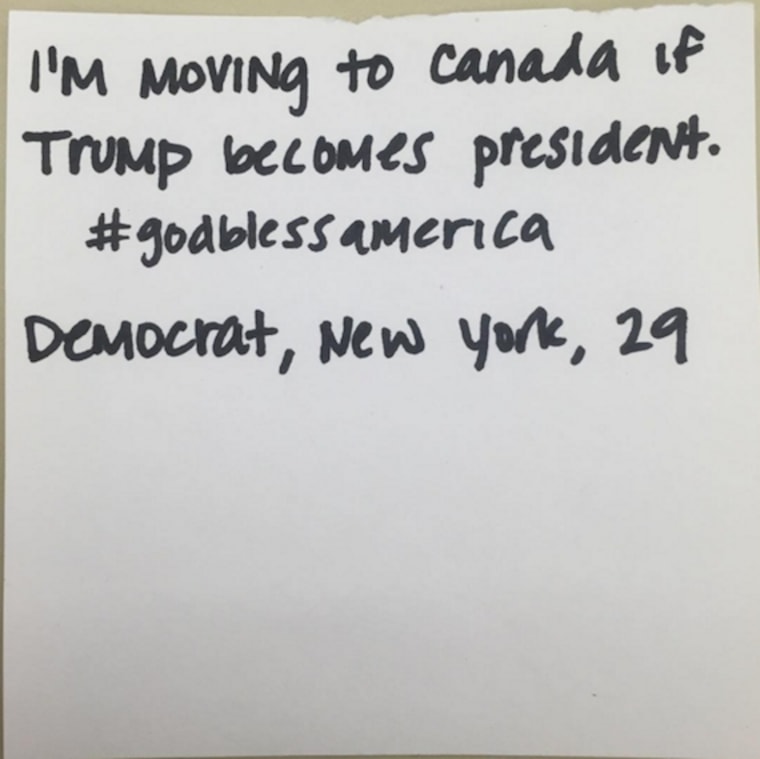 I'm moving to Canada if
Trump becomes president.
#godblessamerica
Democrat, New York, 29